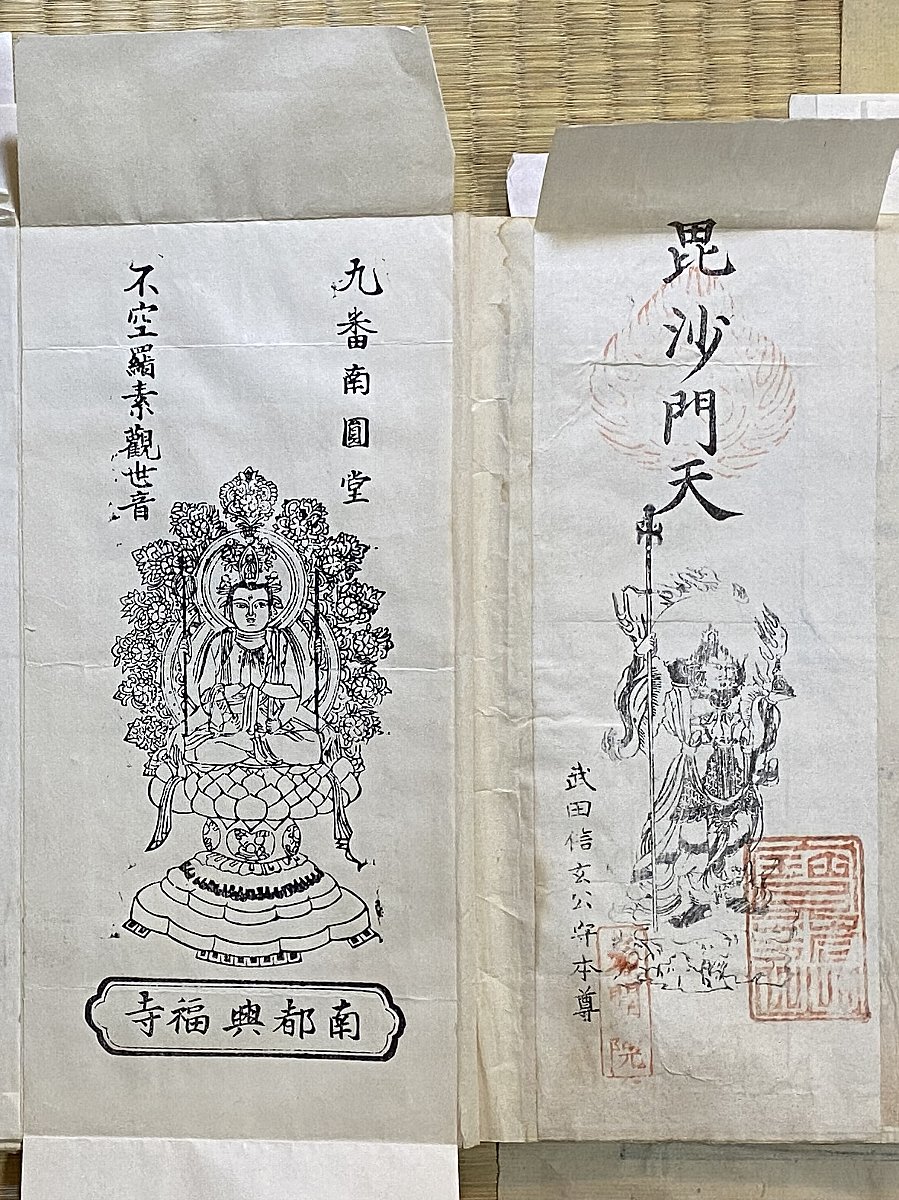 毘沙門天
武田信玄公守本尊
九番南圓堂
不空羂素觀世音
南都興福寺